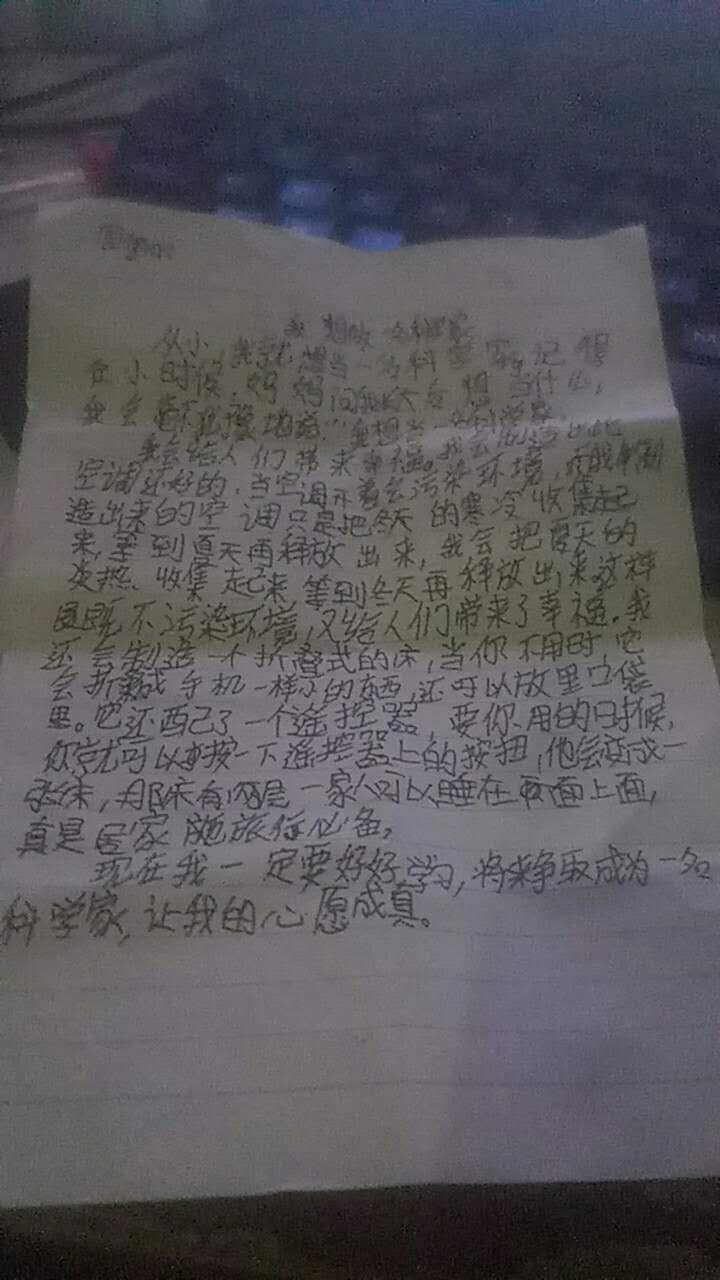 我想做一名科学家
从小,我就想当一名科学家,记得
在小时候,妈妈问我长大后想当什么,
我会毫不犹豫地答:"我想当一名科学家。
我会给人们带来幸福。我会
空调还好的,当空调 会污染环境,而我制
造出来的空调只是把冬天的寒冷收集起
来,等到夏天再释放出来,我会把夏天的
炎热、收集起来,等到冬天再释放出来,这样
既不污染环境,又给人们带来了幸福。我
还会制造一个折叠式的床,当你不用时,它
会折叠成手机一样小的东西,还可以放里口袋
里。它还配了一个遥控器,要你用的时候,
你就可以按一下遥控器上的按扭,他会变成一
张床,那床有两层一家人可以睡在上面,
真是居家旅行必备。
现在我一定要好好学习,将来争取成为一名
科学家,让我的心愿成真。